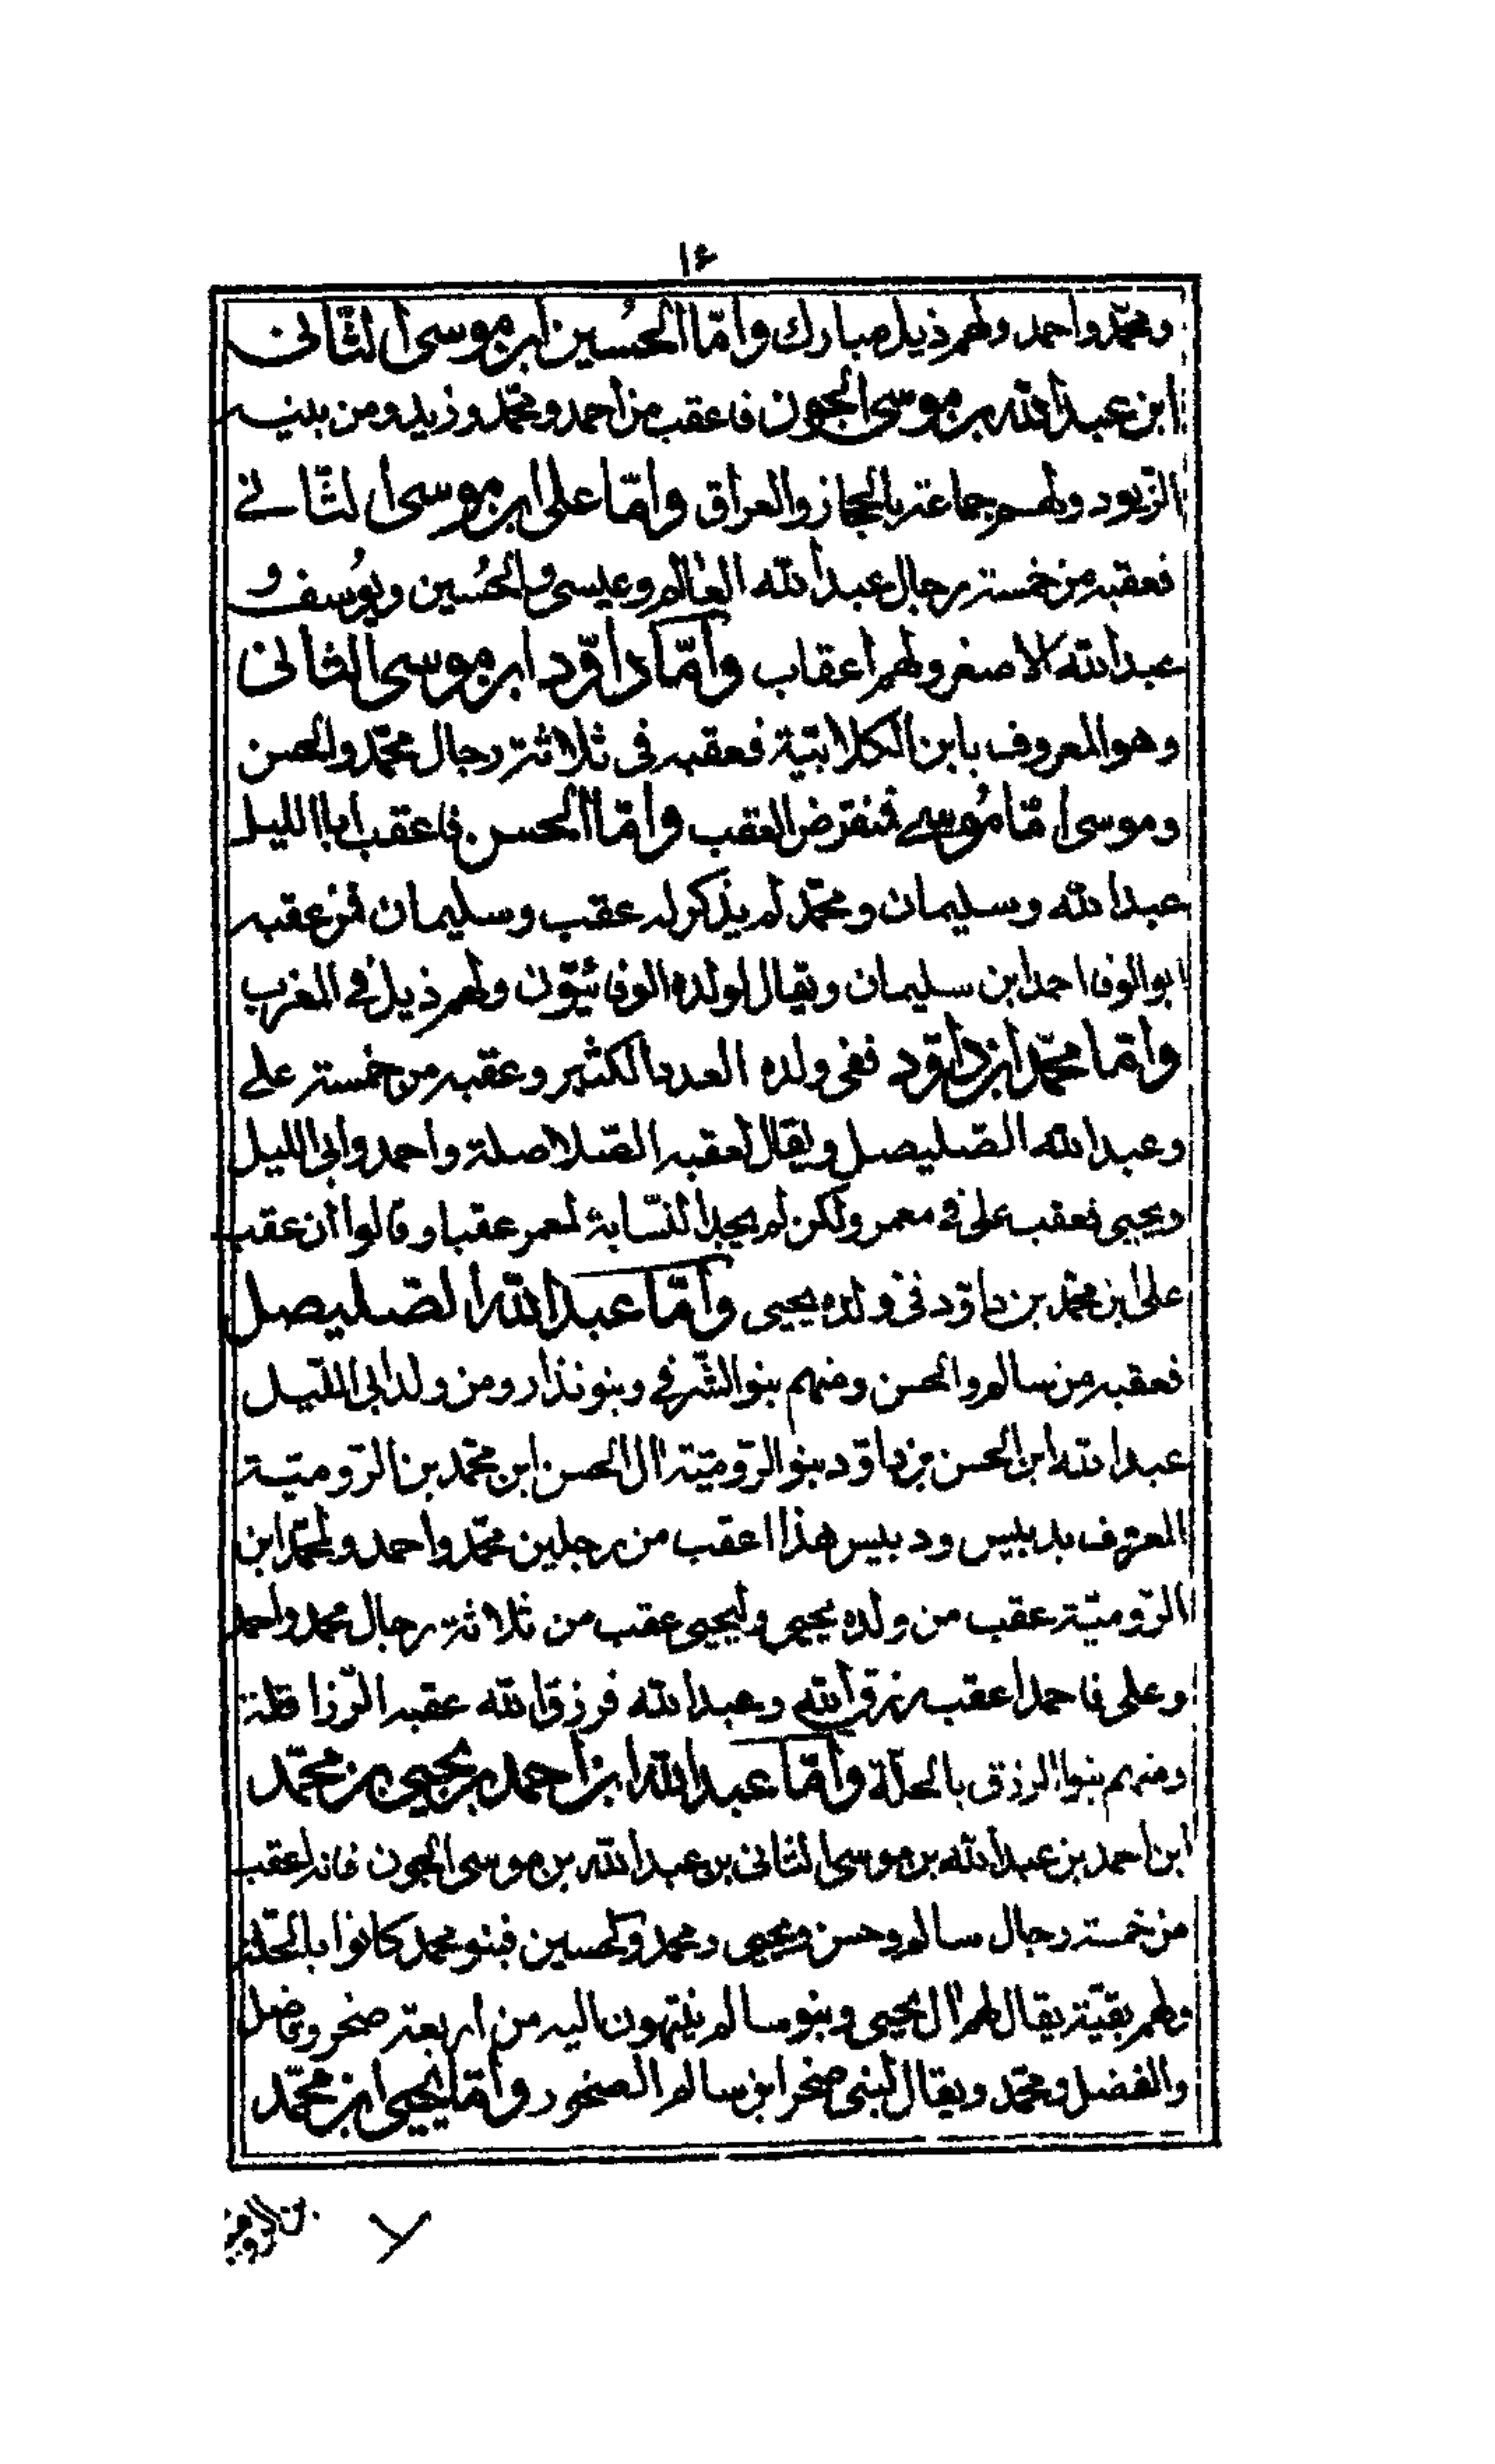 ١٤
ومحمّد واحمد ولهم ذيل مبارك وامّا الحُسين ابن موسى الثّانى
ابن عبدالله بن موسى الجون فاعقب من احمد ومحمّد وزيد ومن بنيه
الزيود ولهم جماعة بالحجاز والعراق وامّا على ابن موسى الثّانے
فعقبه من خمسة رجال عبدالله العالم وعيسى والحُسين ويوُسف و
عبدالله الاصغر ولهم اعقاب وامّا داوّد ابن موسى الثانى
وهو المعروف بابن الكلابتية فعقبه فى ثلاثة رجال محمّد والحسن
وموسى امّا موُسے فنقرض العقب وامّا الحسن فاعقب ابا الليل
عبدالله وسليمان ومحمّد لم يذكر له عقب وسليمان فمن عقبه
ابو الوفا احمد ابن سليمان ويقال لولده الوفائيّون ولهم ذيل فے المغرب
وامّا محمّد ابن داوّد ففى ولده العدد الكثير وعقبه من خمسة على
وعبدالله الصّليصل ويقال لعقبه الصّلاصلة واحمد وابى الليل
ويحيى فعقب على فى معمر ولكن لم يجد النّسّابة لمعمر عقبا وقالوا ان عقب
على ابن محمّد بن داوّد فى ولده يحيى وامّا عبدالله الصّليصل
فعقبه من سالم والحسن ومنهم بنو الشّرفى وبنو نذار ومن ولد ابى اللّيل
عبدالله ابن الحسن بن داوّد بنو الرّوميّة ال الحسن ابن محمّد بن الرّوميّة
المعروف بدبيس ودبيس هذا اعقب من رجلين محمّد واحمد ولمحمّد ابن
الرّوميّة عقب من ولده يحيى وليحيى عقب من ثلاثة رجال محمد واحمد
وعلى فاحمد اعقب رزق الله وعبدالله فرزق الله عقبه الرّزاقلة
ومنهم بنوا الرزق بالحلّة وامّا عبدالله ابن احمد بن يحيى بن محمّد
ابن احمد بن عبدالله بن موسى الثّانى بن عبدالله بن موسى الجون فانه اعقب
من خمسة رجال سالم وحسن ويحيى ومحمد والحسين فبنو محمد كانوا بالحلّة
ولهم بقيّة يقال لهم ال يحيى وبنو سالم ينتهون اليه من اربعة صخر وفاضل
والفضل ومحمّد ويقال لبنى صخر ابن سالم الصخور وامّا يحيى ابن محمّد